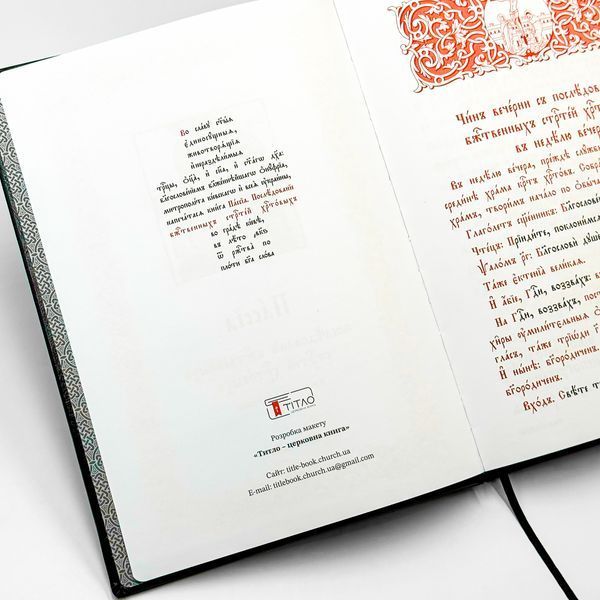 Во славꙋ ст҃ы́ѧ
є҆диносꙋ́щныѧ,
животворѧ́щїѧ
и҆ нераздѣ́лимыѧ
трⷪ҇цы, ѻ҆ц҃а̀, и҆ сн҃а, и҆ ст҃а́гѡ дх҃а:
митрополі́та кі́евскагѡ и҆ всеѧ̀ ᲂу҆краи́ны,
напеча́тасѧ кни́га Пассі́а. Послѣ́дованїе
бж҃е́ственныхъ стрⷭ҇те́й хрⷭ҇то́выхъ
во гра́дѣ кі́евѣ,
въ лѣ́то
ѿ ржⷭ҇тва̀ по
пло́ти бг҃а сло́ва
ТІТЛО
Розробка макету
«Титло – церковна книга»
Сайт: title-book.church.ua
E-mail: titlebook.church.ua@gmail.com
Чи́нъ вече́рни съ послѣ́дов
бж҃е́ственныхъ стрⷭ҇те́й хрⷭ҇т
въ недѣ́лю вече
Въ недѣ́лю ве́чера, пре́жде слꙋ́жбы
среди́нѣ хра́ма крⷭ҇тъ хрⷭ҇то́въ. Собра
хра́мъ, твори́мъ нача́ло по ѡ҆бы́ча
Глаго́летъ сщ҃е́нникъ: Благослове́н
Чте́цъ: Прїиди́те, поклони́мсѧ
Ѱало́мъ рг҃: Благословѝ дꙋшѐ
Та́же є҆ктенїа̀ вели́каѧ.
И҆ а҆́бїе, Гдⷭ҇и, воззва́хъ:
На Гдⷭ҇и, воззва́хъ, пост
хи́ры ᲂу҆мили́тельныѧ
гла́съ, та́же трїѡ́ди
И҆ ны́нѣ: бг҃оро́диченъ
бг҃оро́диченъ.
Вхо́дъ. Свѣ́те ти